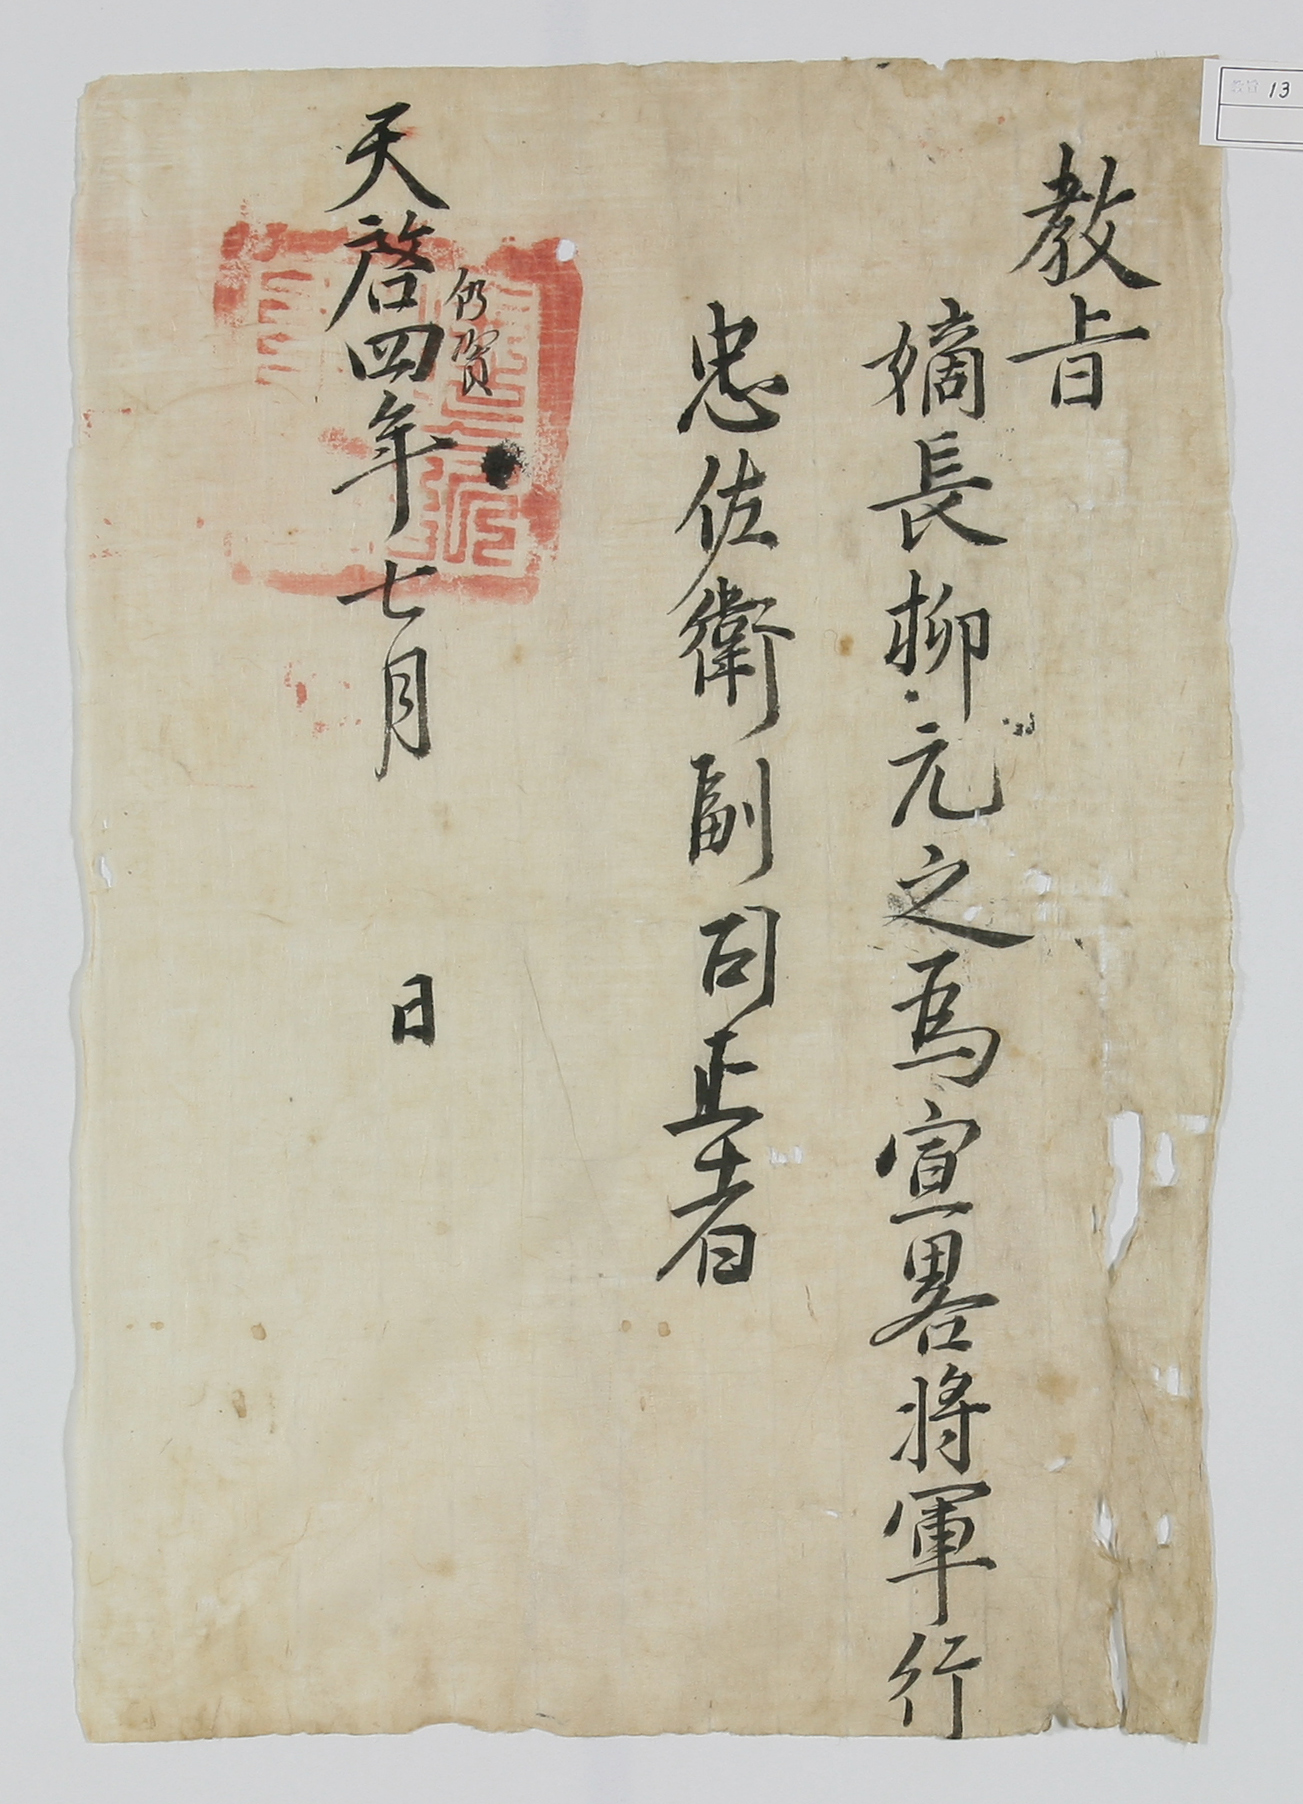 教旨
嫡長柳元之爲宣畧將軍行
忠佐衛副司正者
天啓四年七月 日
仍資
13